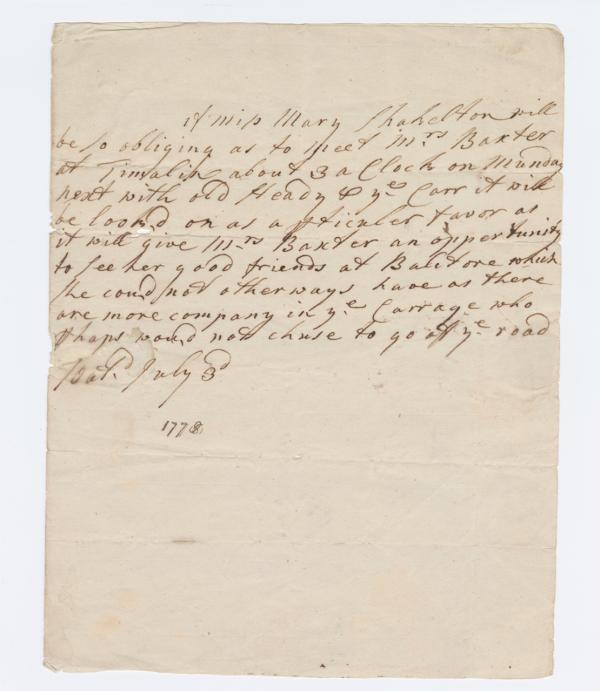 if miss Mary Shakelton will
be so obliging as to meet Mrs Baxter
at Timalin about 3 a Clock on Munday
next with old Heady & ye Carr it will
be look'd on as a pticuler favor as
it will give Mrs Baxter an oppertunity
to see her good friends at Balitore which
she coud not otherways have as there
are more company in ye Carrage who
phaps woud not chuse to go of ye road
Sat. July 3d
1778